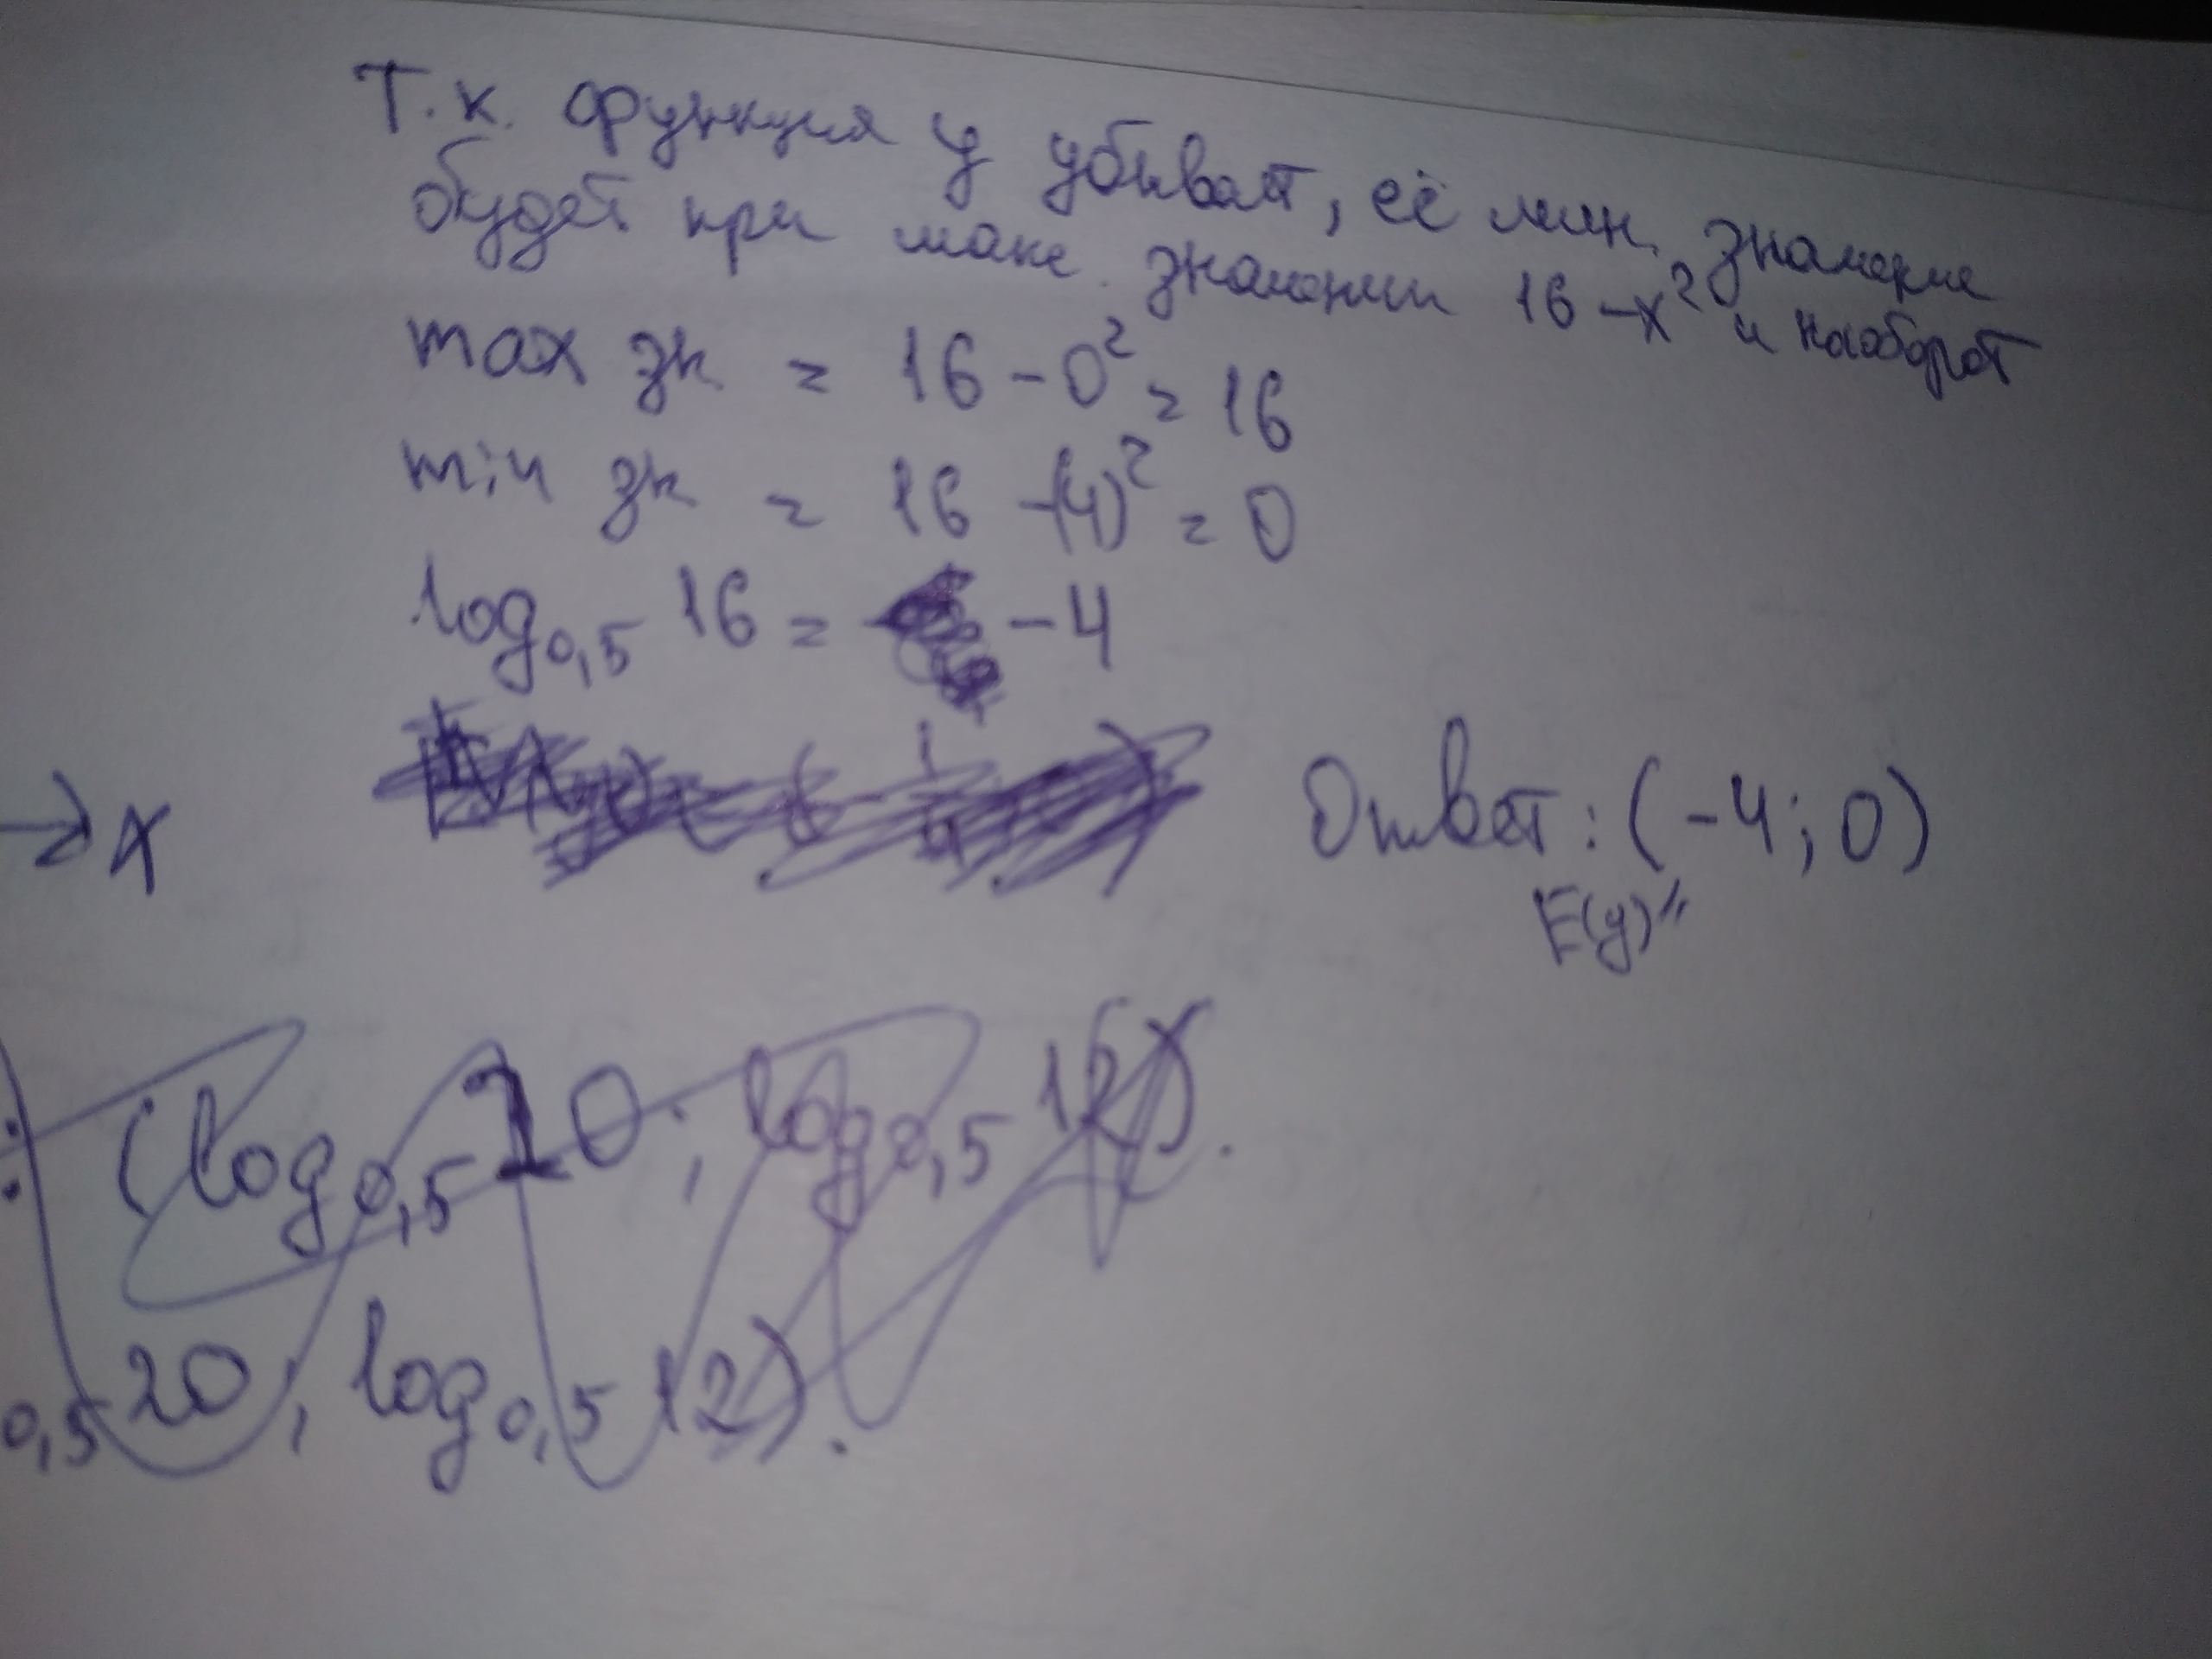 Т.к. функция у убывает, её мин. значение
будет при макс. значении 16-x² и наоборот
max зн = 16-0² = 16
min зн = 16-(4)² = 0
log₀,₅ 16 = -4
→x
Ответ: (-4; 0)
E(y)"
(log₀,₅ 20; log₀,₅ 12).
0,5 20; log₀,₅ 12).